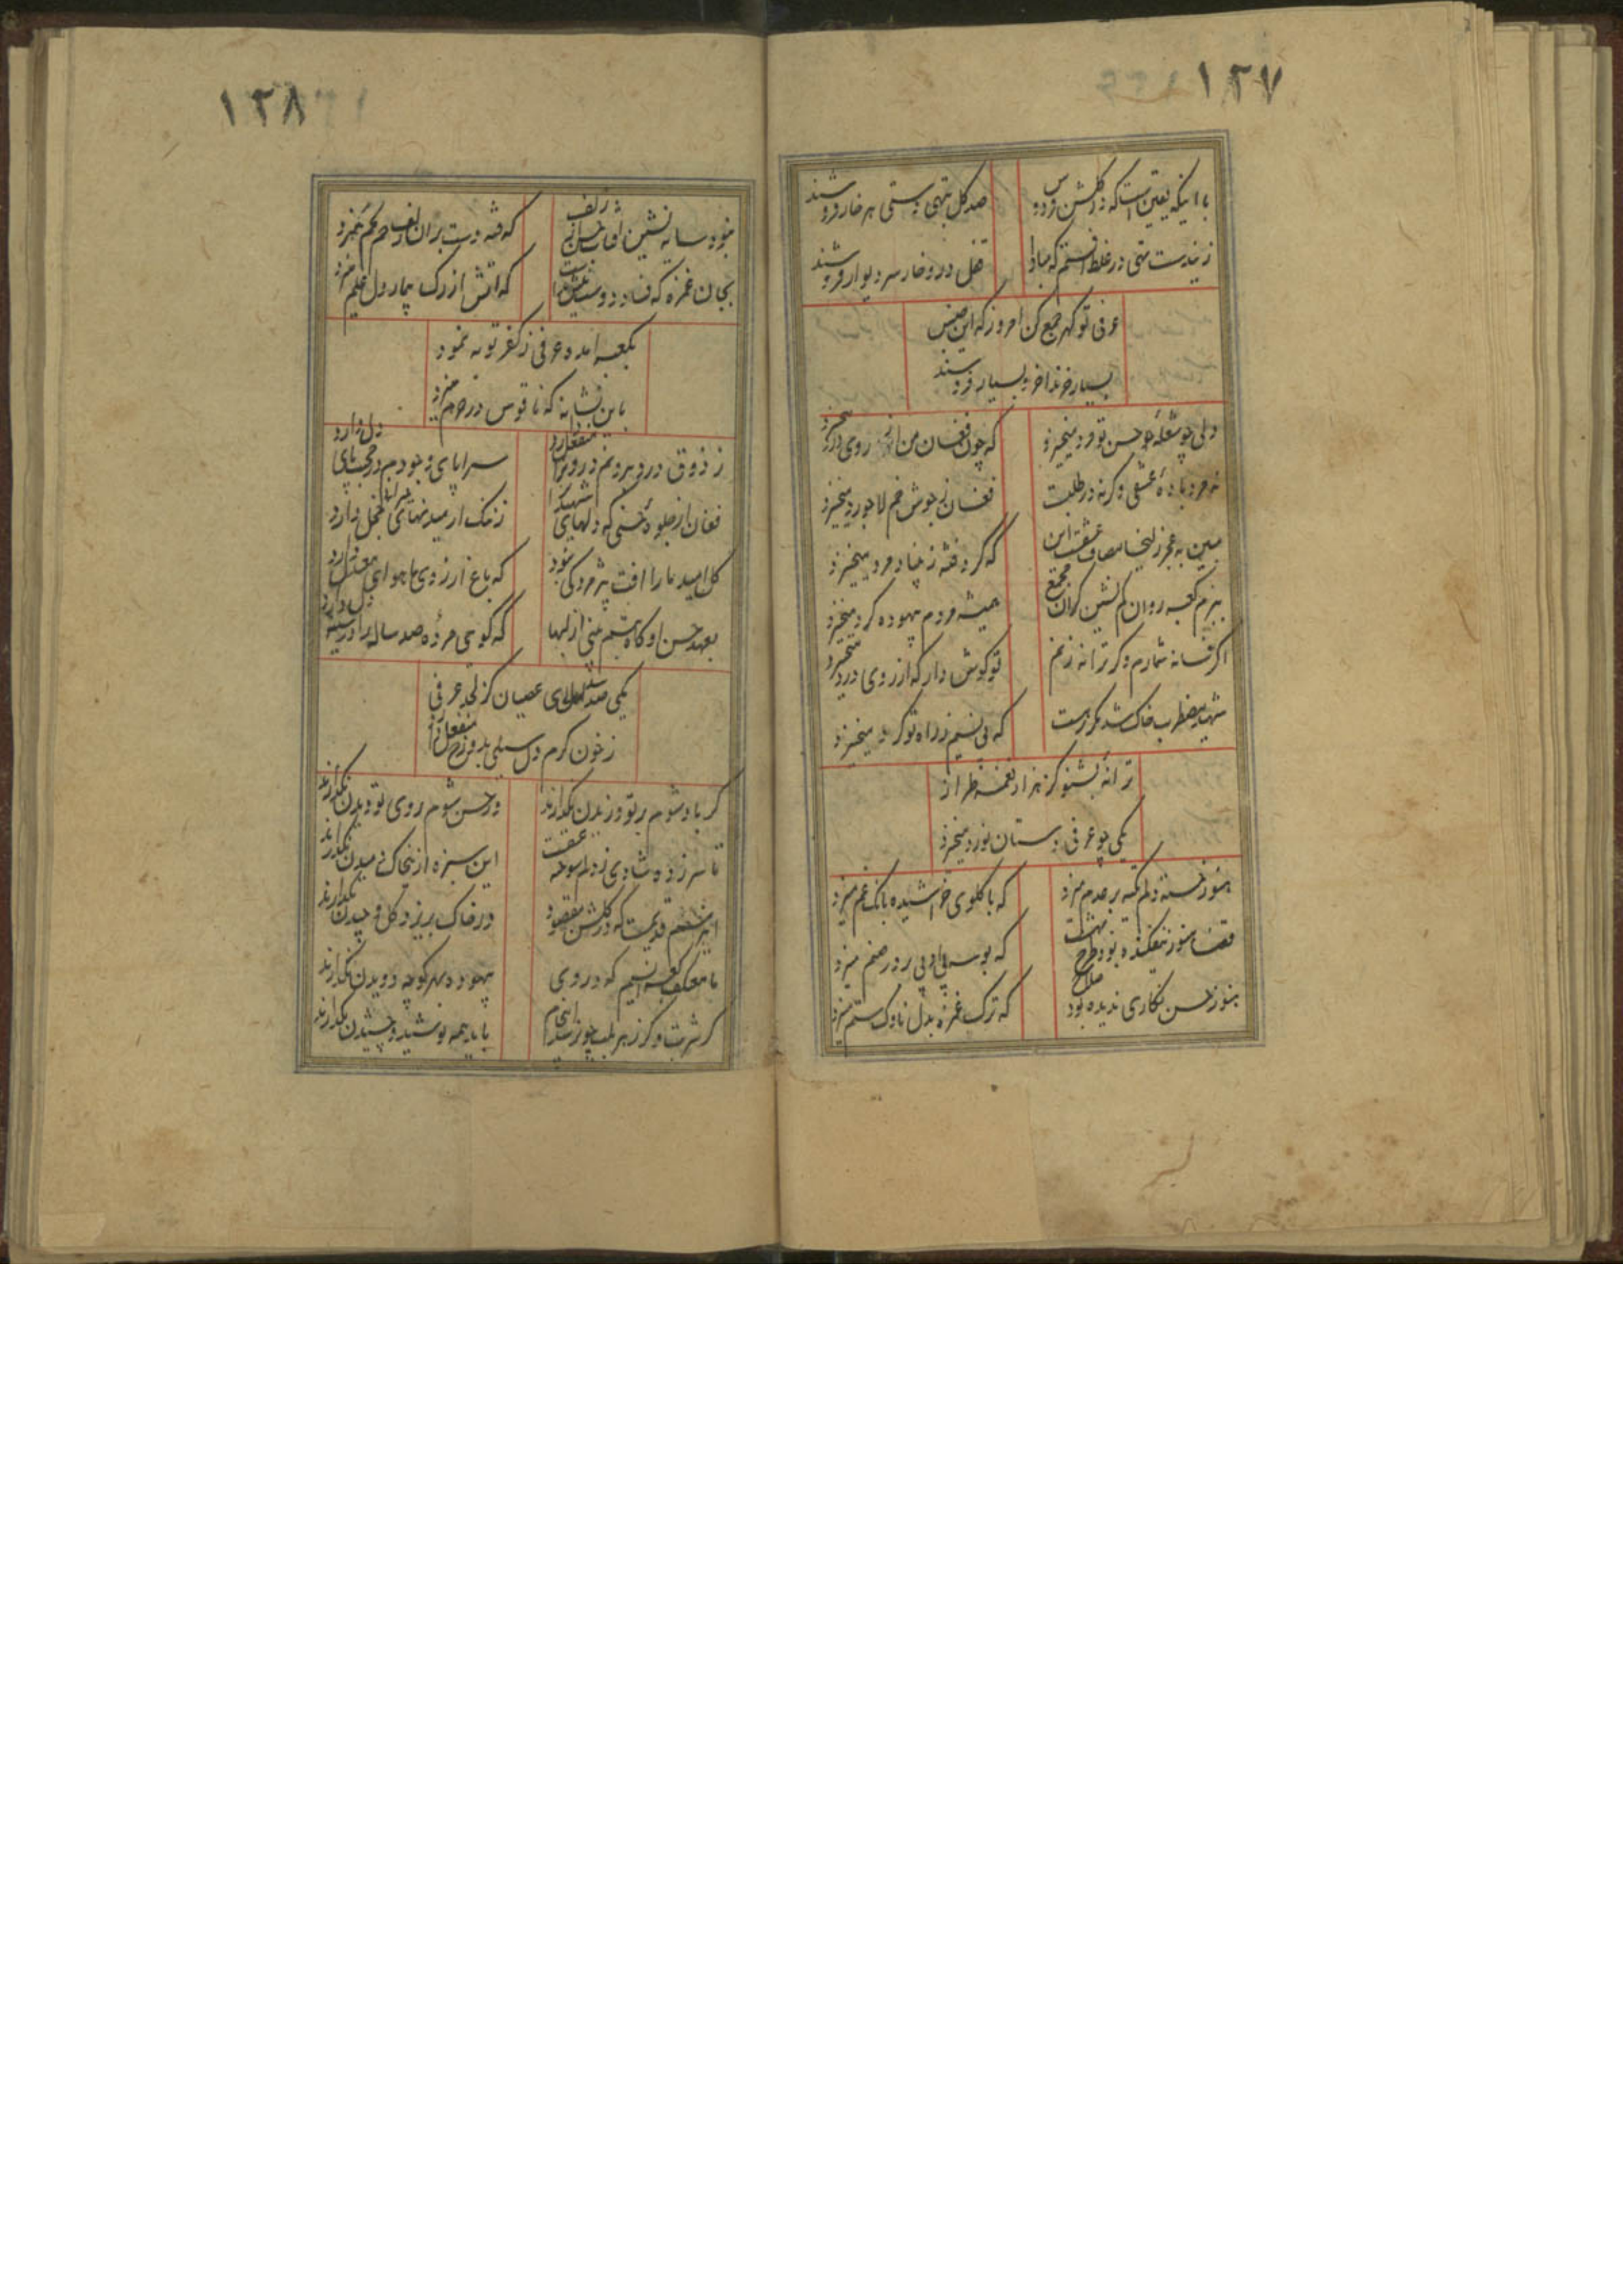 ۱۲۷
با اینکه یقین است که در گلشن فردوس
صد گل بتهی دستی هر خار فروشند
زیندست تهی در غلط افتم که مبادا
گل در و خار سر دیوار فروشند
عرفی تو گهر جمع کن امروز که این جنس
بسیار خرند اخر و بسیار فروشند
دلی چو شعله حسن تو فرد میخیزد
که چون فغان من از روی درد میخیزد
نه مرد باده عشقی وگرنه در طلبت
فغان ز جوش خم لاجورد میخیزد
مبین به عجز زلیخا مصاف عشقست این
که گرد فتنه ز بنیاد مرد میخیزد
ببزم کعبه روان کم نشین کزان مجمع
همیشه مردم بیهوده گرد میخیزد
اگر فسانه شمارم وگر ترانه زنم
تو گوش دار که از روی درد میخیزد
شهید مضطرب خاک شد مگر رهت
که بی نسیم ز راه تو گرد میخیزد
ترانه بشنو کز هزار نغمه طراز
یکی چو عرفی دستان نورد میخیزد
هنوز خسته دلم تکیه بر عدم میزد
که با گلوی خراشیده بانگ غم میزد
قضا هنوز نیفکنده بود طرح بهشت
که بوسه بی ادبی بر در صنم میزد
هنوز حسن نگاری ندیده بود صلاح
که ترک غمزه بدل ناوک ستم میزد
۱۲۸
نبود سایه نشین افتاب حسن از زلف
که فتنه دست بران زلف خم بخم میزد
بجان غمزه که فصاد دوستیش
که اتش از رگ بیمار دل علم میزد
بکعبه امد و عرفی ز کفر توبه نمود
باین نشانه که ناقوس در حرم میزد
ز ذوق درد بیرونم درونرا منفعل دارد
سراپای وجودم در محبت پای دل دارد
فغان از جلوه حسنی که دلهای شهیدانرا
ز ننگ ارمیدنهای خجل دارد
گل امید ما را افت پژمردگی نبود
که باغ ارزوی ما هوای معتدل دارد
بعهد حسن او گاه تبسم منی از لبها
که گوئی مرده صد ساله را در سینه دل دارد
یکی صد سال عصیان کز لحد عرفی
ز خون گرم دل سیلی بدوزخ منفعل دارد
گر باد شوم بر تو وزیدن نگذارند
ور حسن شوم روی تو دیدن نگذارند
تا سر زده شادی ز دلم سوخته عشقت
این سبزه ازین خاک دمیدن نگذارند
این رسم قدیمست که در گلشن مقصود
در خاک بریزد گل و چیدن نگذارند
ما معتکف کعبه انسیم که در وی
بیهوده بهر کوچه دویدن نگذارند
گر شربت و گر زهر بلب چو رسد انجام
باید همه نوشید و چشیدن نگذارند